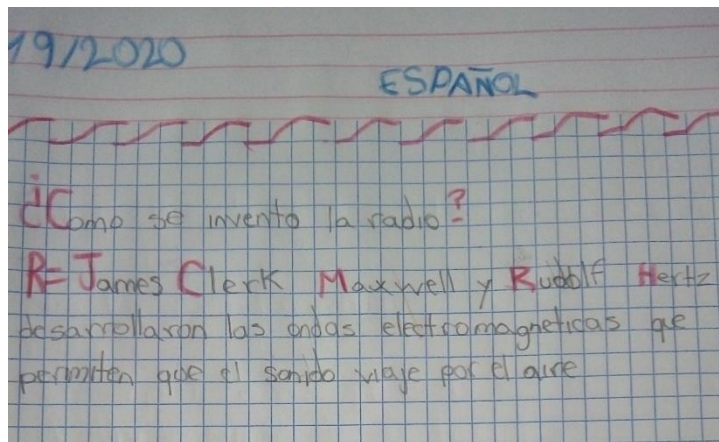 19/2020
ESPAÑOL
¿Como se invento la radio?
R= James Clerk Maxwell y Rudolf Hertz
desarrollaron las ondas electromagneticas que
permiten que el sonido viaje por el aire